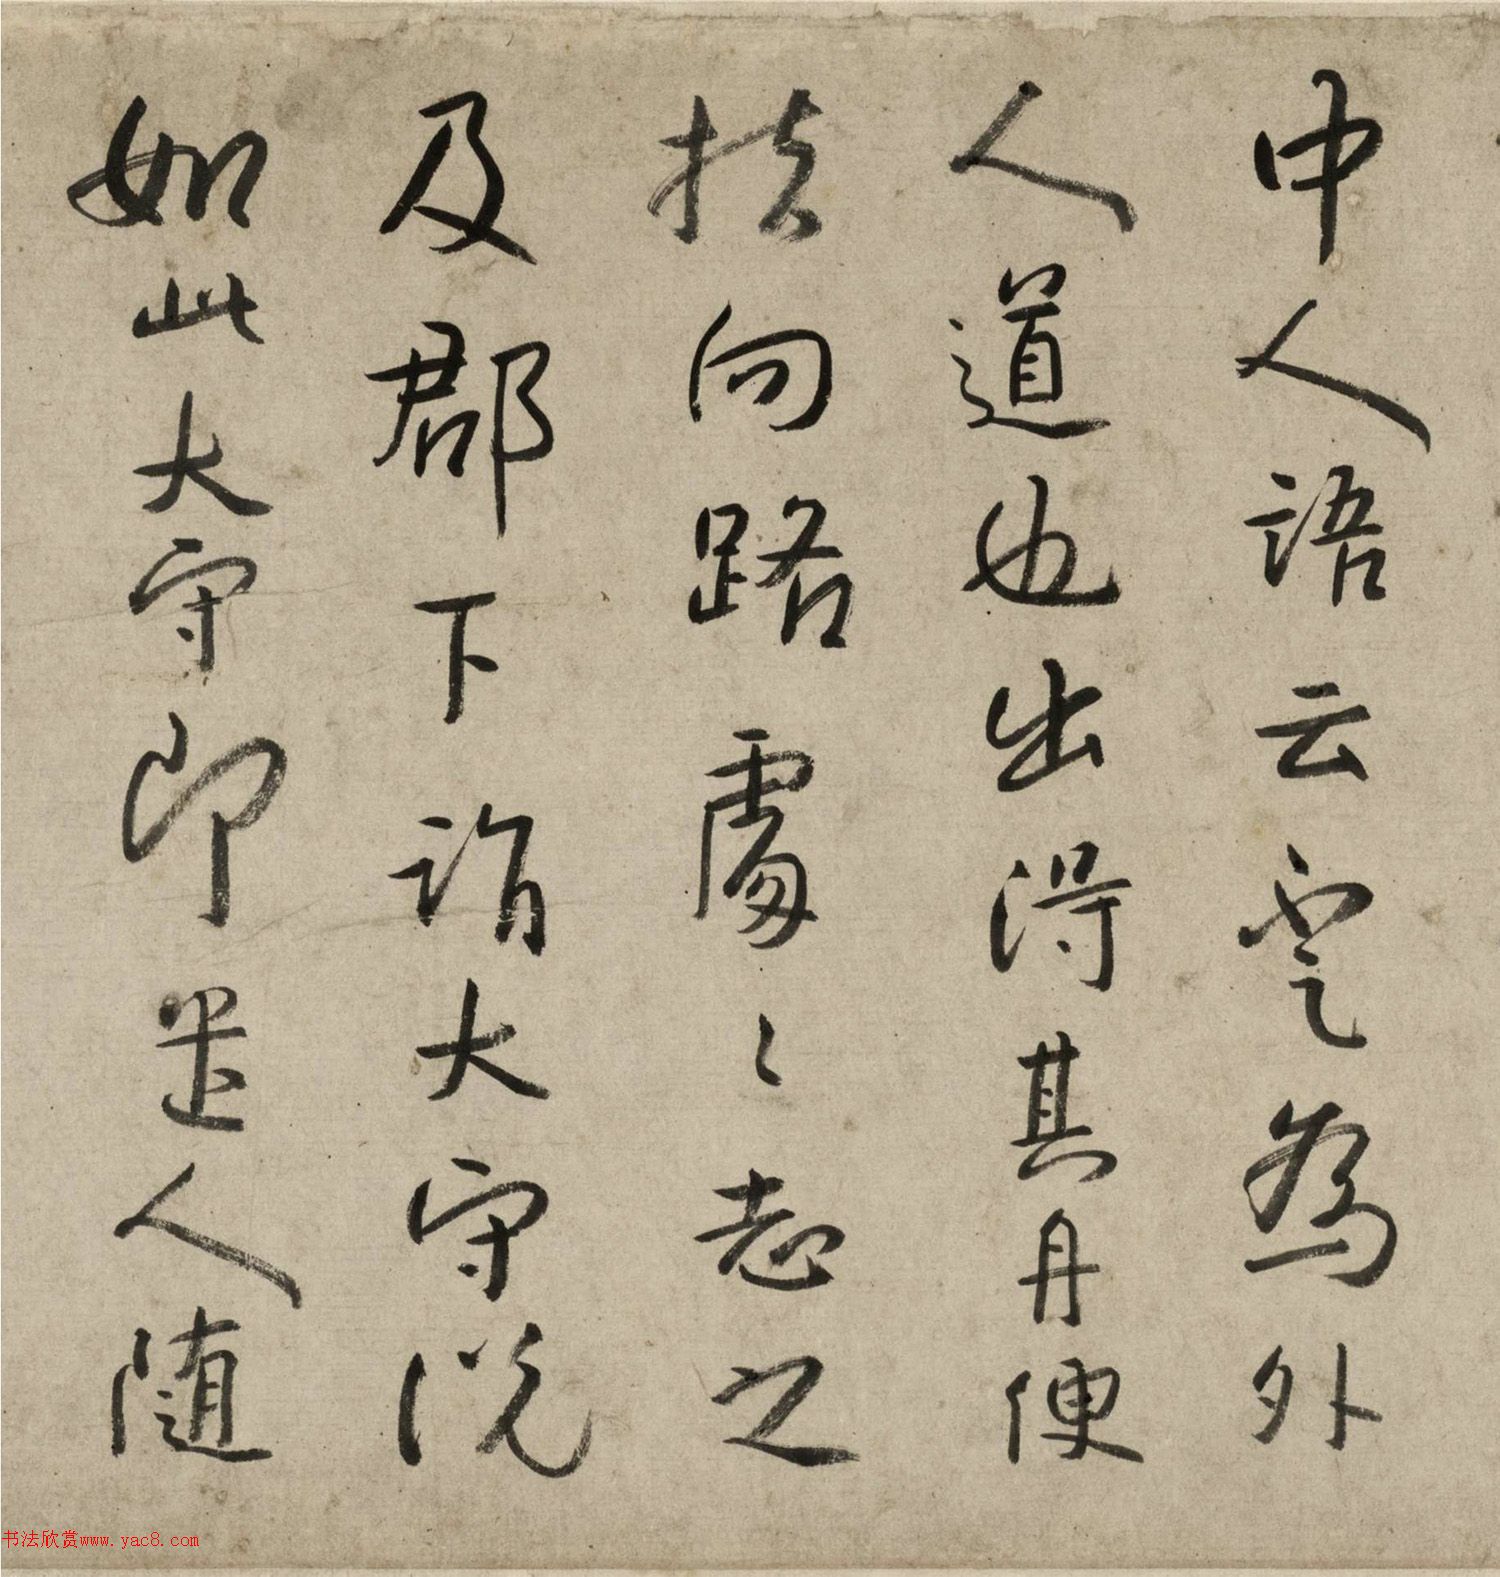 中人語云不足為外
人道也出得其舟便
扶向路處〻志之
及郡下詣大守説
如此大守即遣人随
书法欣赏www.yac8.com